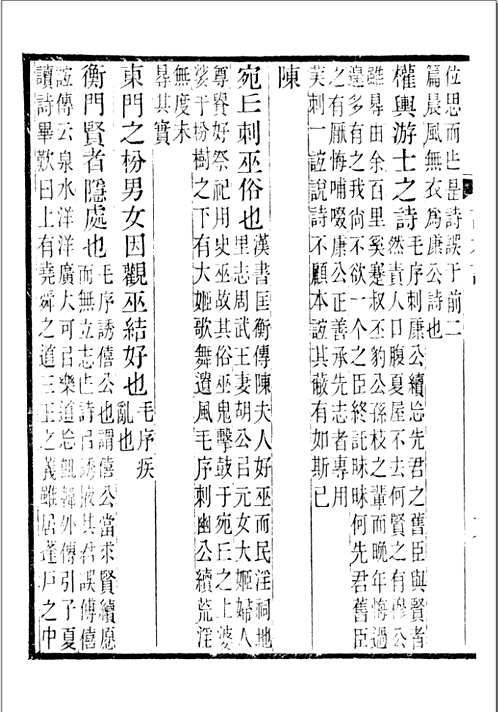 位思而㞢昰詩誤于前二
篇晨風無衣為康公詩也
權輿游士之詩
毛序刺康公續忩先君之舊臣與賢者
然責人口腹夏屋不去何賢之有公
雖㝵由余百里奚蹇叔丕豹公孫枝之輩而晚年悔過
遑多有之我尙不欲一个之臣終託昧昧何先君舊臣
之有厭悔哺啜康公正善承先志者專用
刺一誼說詩不顧本誼其蔽有如斯已
陳
宛丘刺巫俗也
漢書匡衡傳陳夫人好巫而民淫祠地
里志周武王妻胡公㠯元女大姬婦人
尊貴好祭祀用史巫故其俗巫鬼擊鼓于宛丘之上婆
娑于枌樹之下有大姬歌舞遺風毛序刺幽公續荒淫
無度未
㝵其實
東門之枌男女因觀巫結好也
毛序疾
亂也
衡門賢者隱處也
毛序誘僖公也謂僖公當求賢續愿
而無立志㞢詩㠯誘掖其君誤傳僖
誼傳云泉水洋洋廣大可㠯樂道忩飢韓外傳引子夏
讀詩畢歎曰上有堯舜之道三王之義雖居蓬戶之中